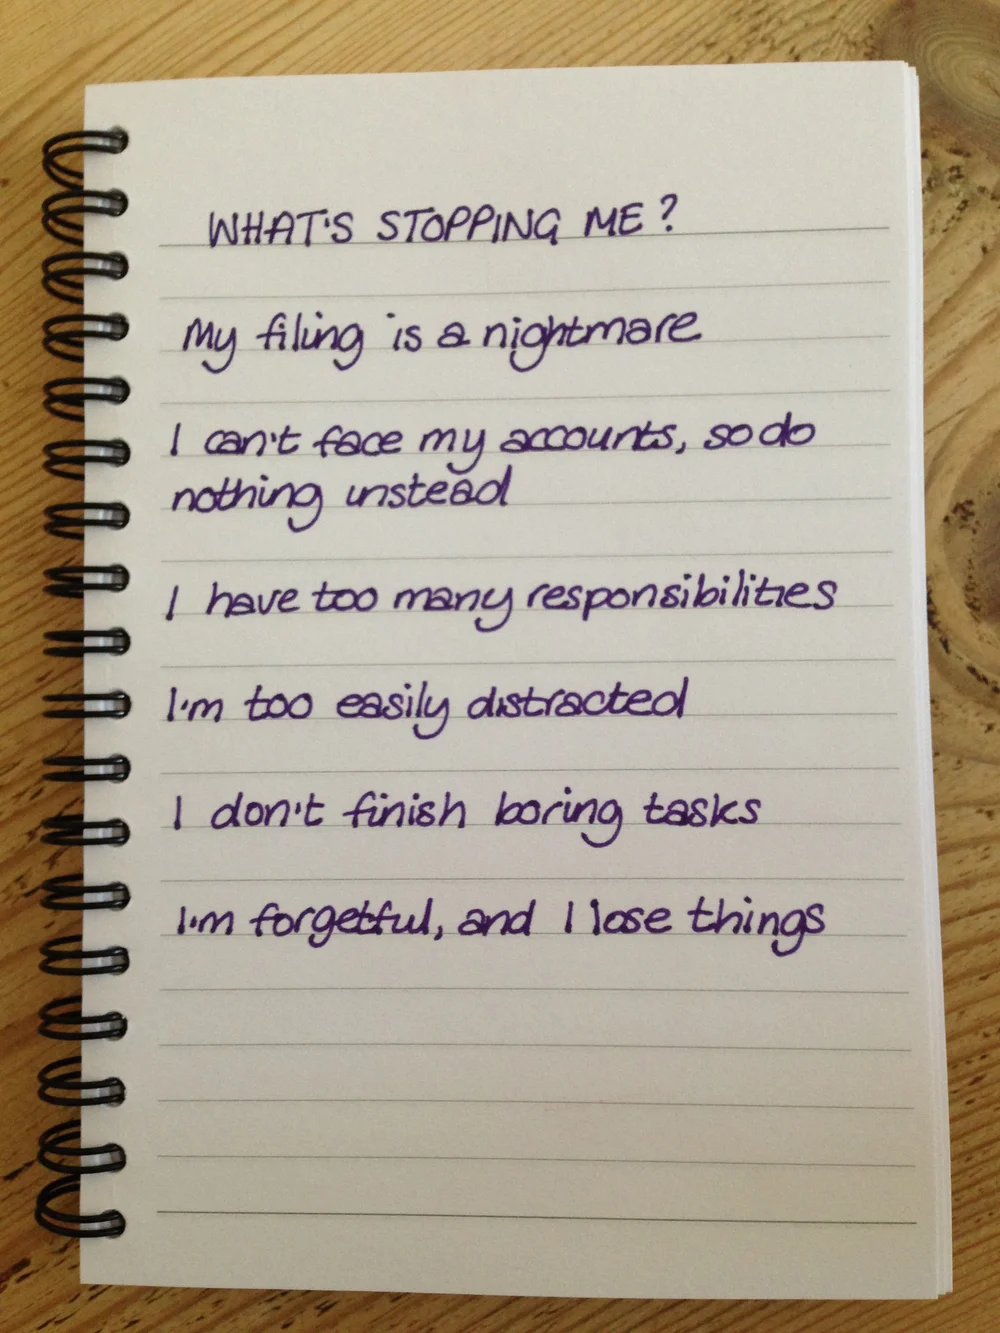 WHAT'S STOPPING ME?
My filing is a nightmare
I can't face my accounts, so do
nothing instead
I have too many responsibilities
I'm too easily distracted
I don't finish boring tasks
I'm forgetful, and I lose things